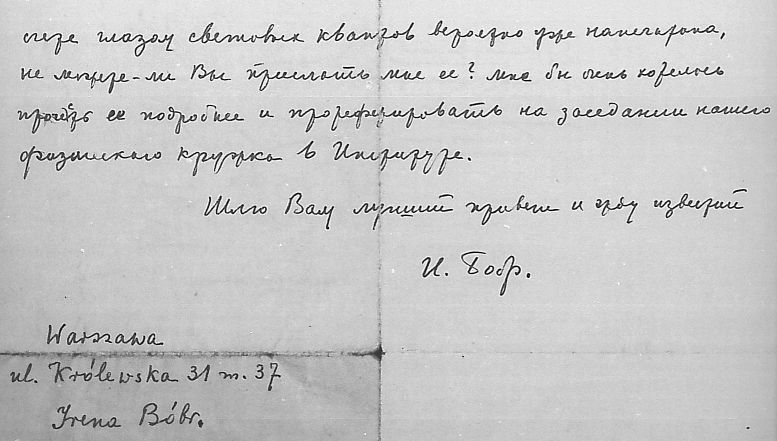 глазом световых квантов вероятно уже напечатана,
не можете-ли Вы прислать мне ее? Мне бы очень хотелось
прочесть ее подробнее и прореферировать на заседании нашего
физического кружка в Институте.
Шлю Вам лучший привет и жду известий
И. Бобр.
Warszawa
ul. Królewska 31 m. 37
Irena Bóbr.